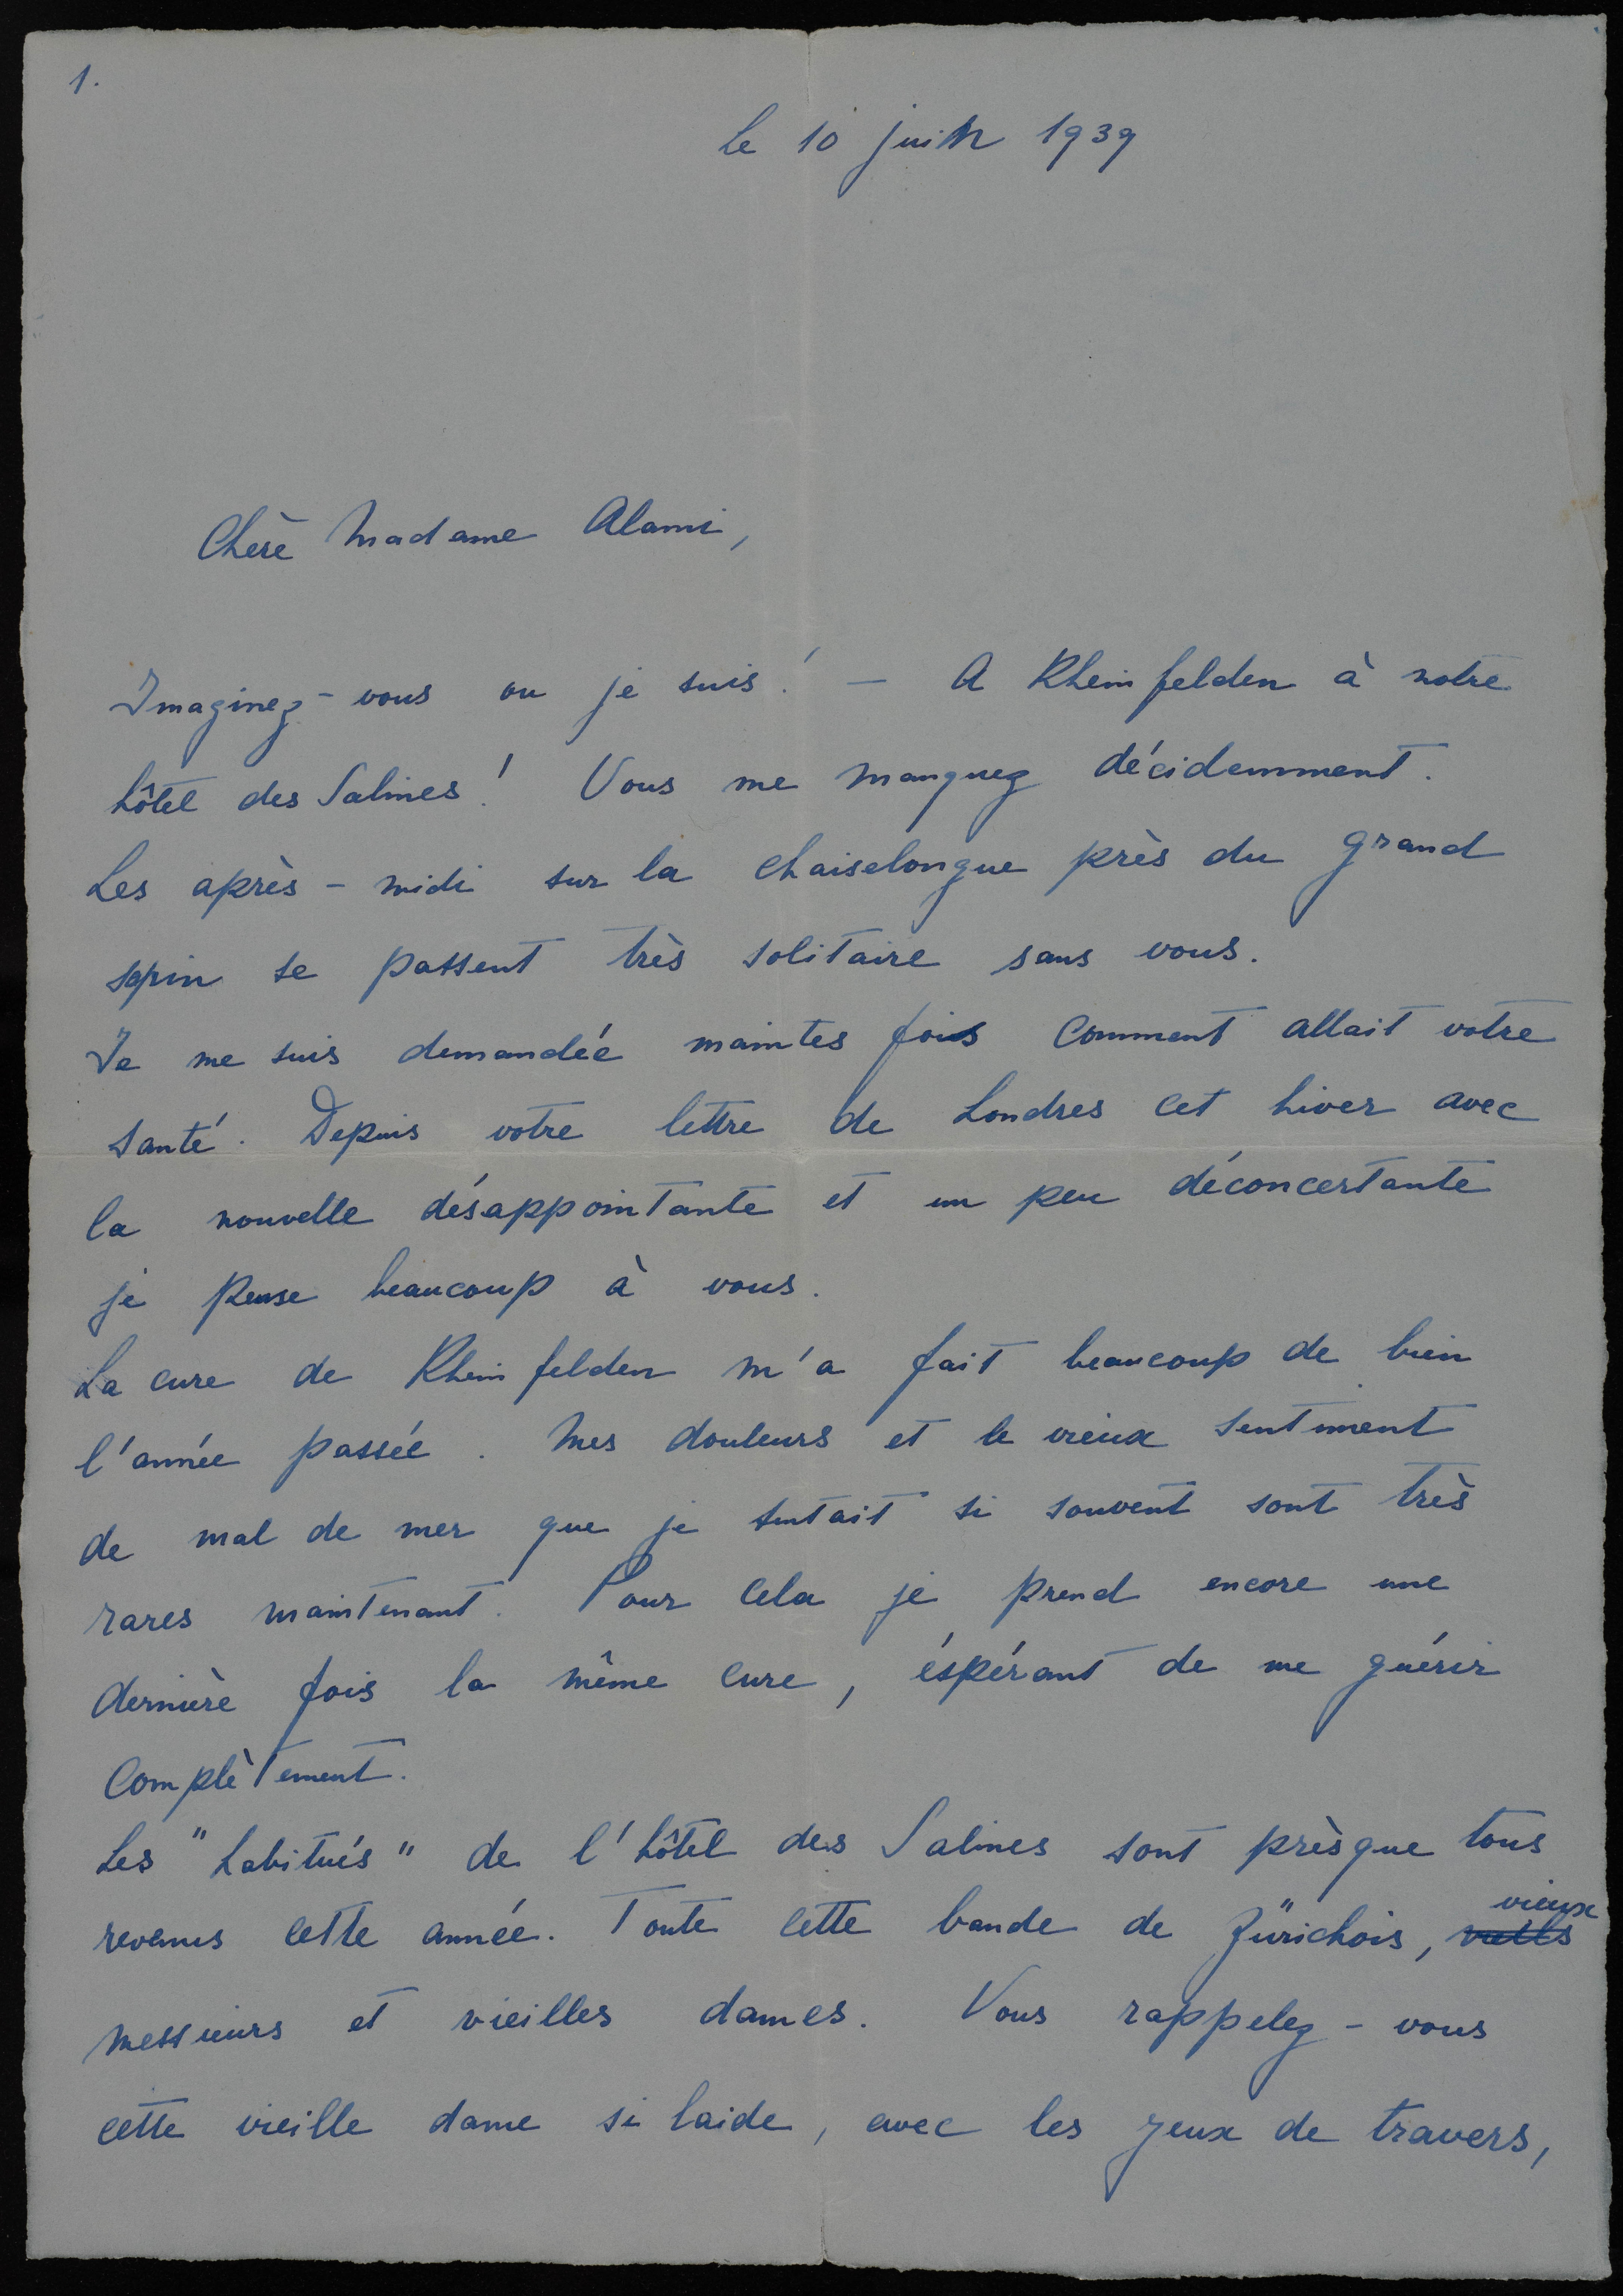 1.
Le 10 juin 1939
Chère Madame Alami,
Imaginez-vous ou je suis! — A Rheinfelden à notre
hôtel des Salines! Vous me manquez décidemment.
Les après-midi sur la chaiselongue près du grand
sapin se passent très solitaire sans vous.
Je me suis demandée maintes fois comment allait votre
santé. Depuis votre lettre de Londres cet hiver avec
la nouvelle désappointante et un peu déconcertante
je pense beaucoup à vous.
La cure de Rheinfelden m'a fait beaucoup de bien
l'année passée. Mes douleurs et le vieux sentiment
de mal de mer que je sentait si souvent sont très
rares maintenant. Pour cela je prend encore une
dernière fois la même cure, éspérant de me guérir
complètement.
Les "habitués" de l'hôtel des Salines sont prèsque tous
revenus cette année. Toute cette bande de Zürichois, vieux
messieurs et vieilles dames. Vous rappelez-vous
cette vieille dame si laide, avec les yeux de travers,